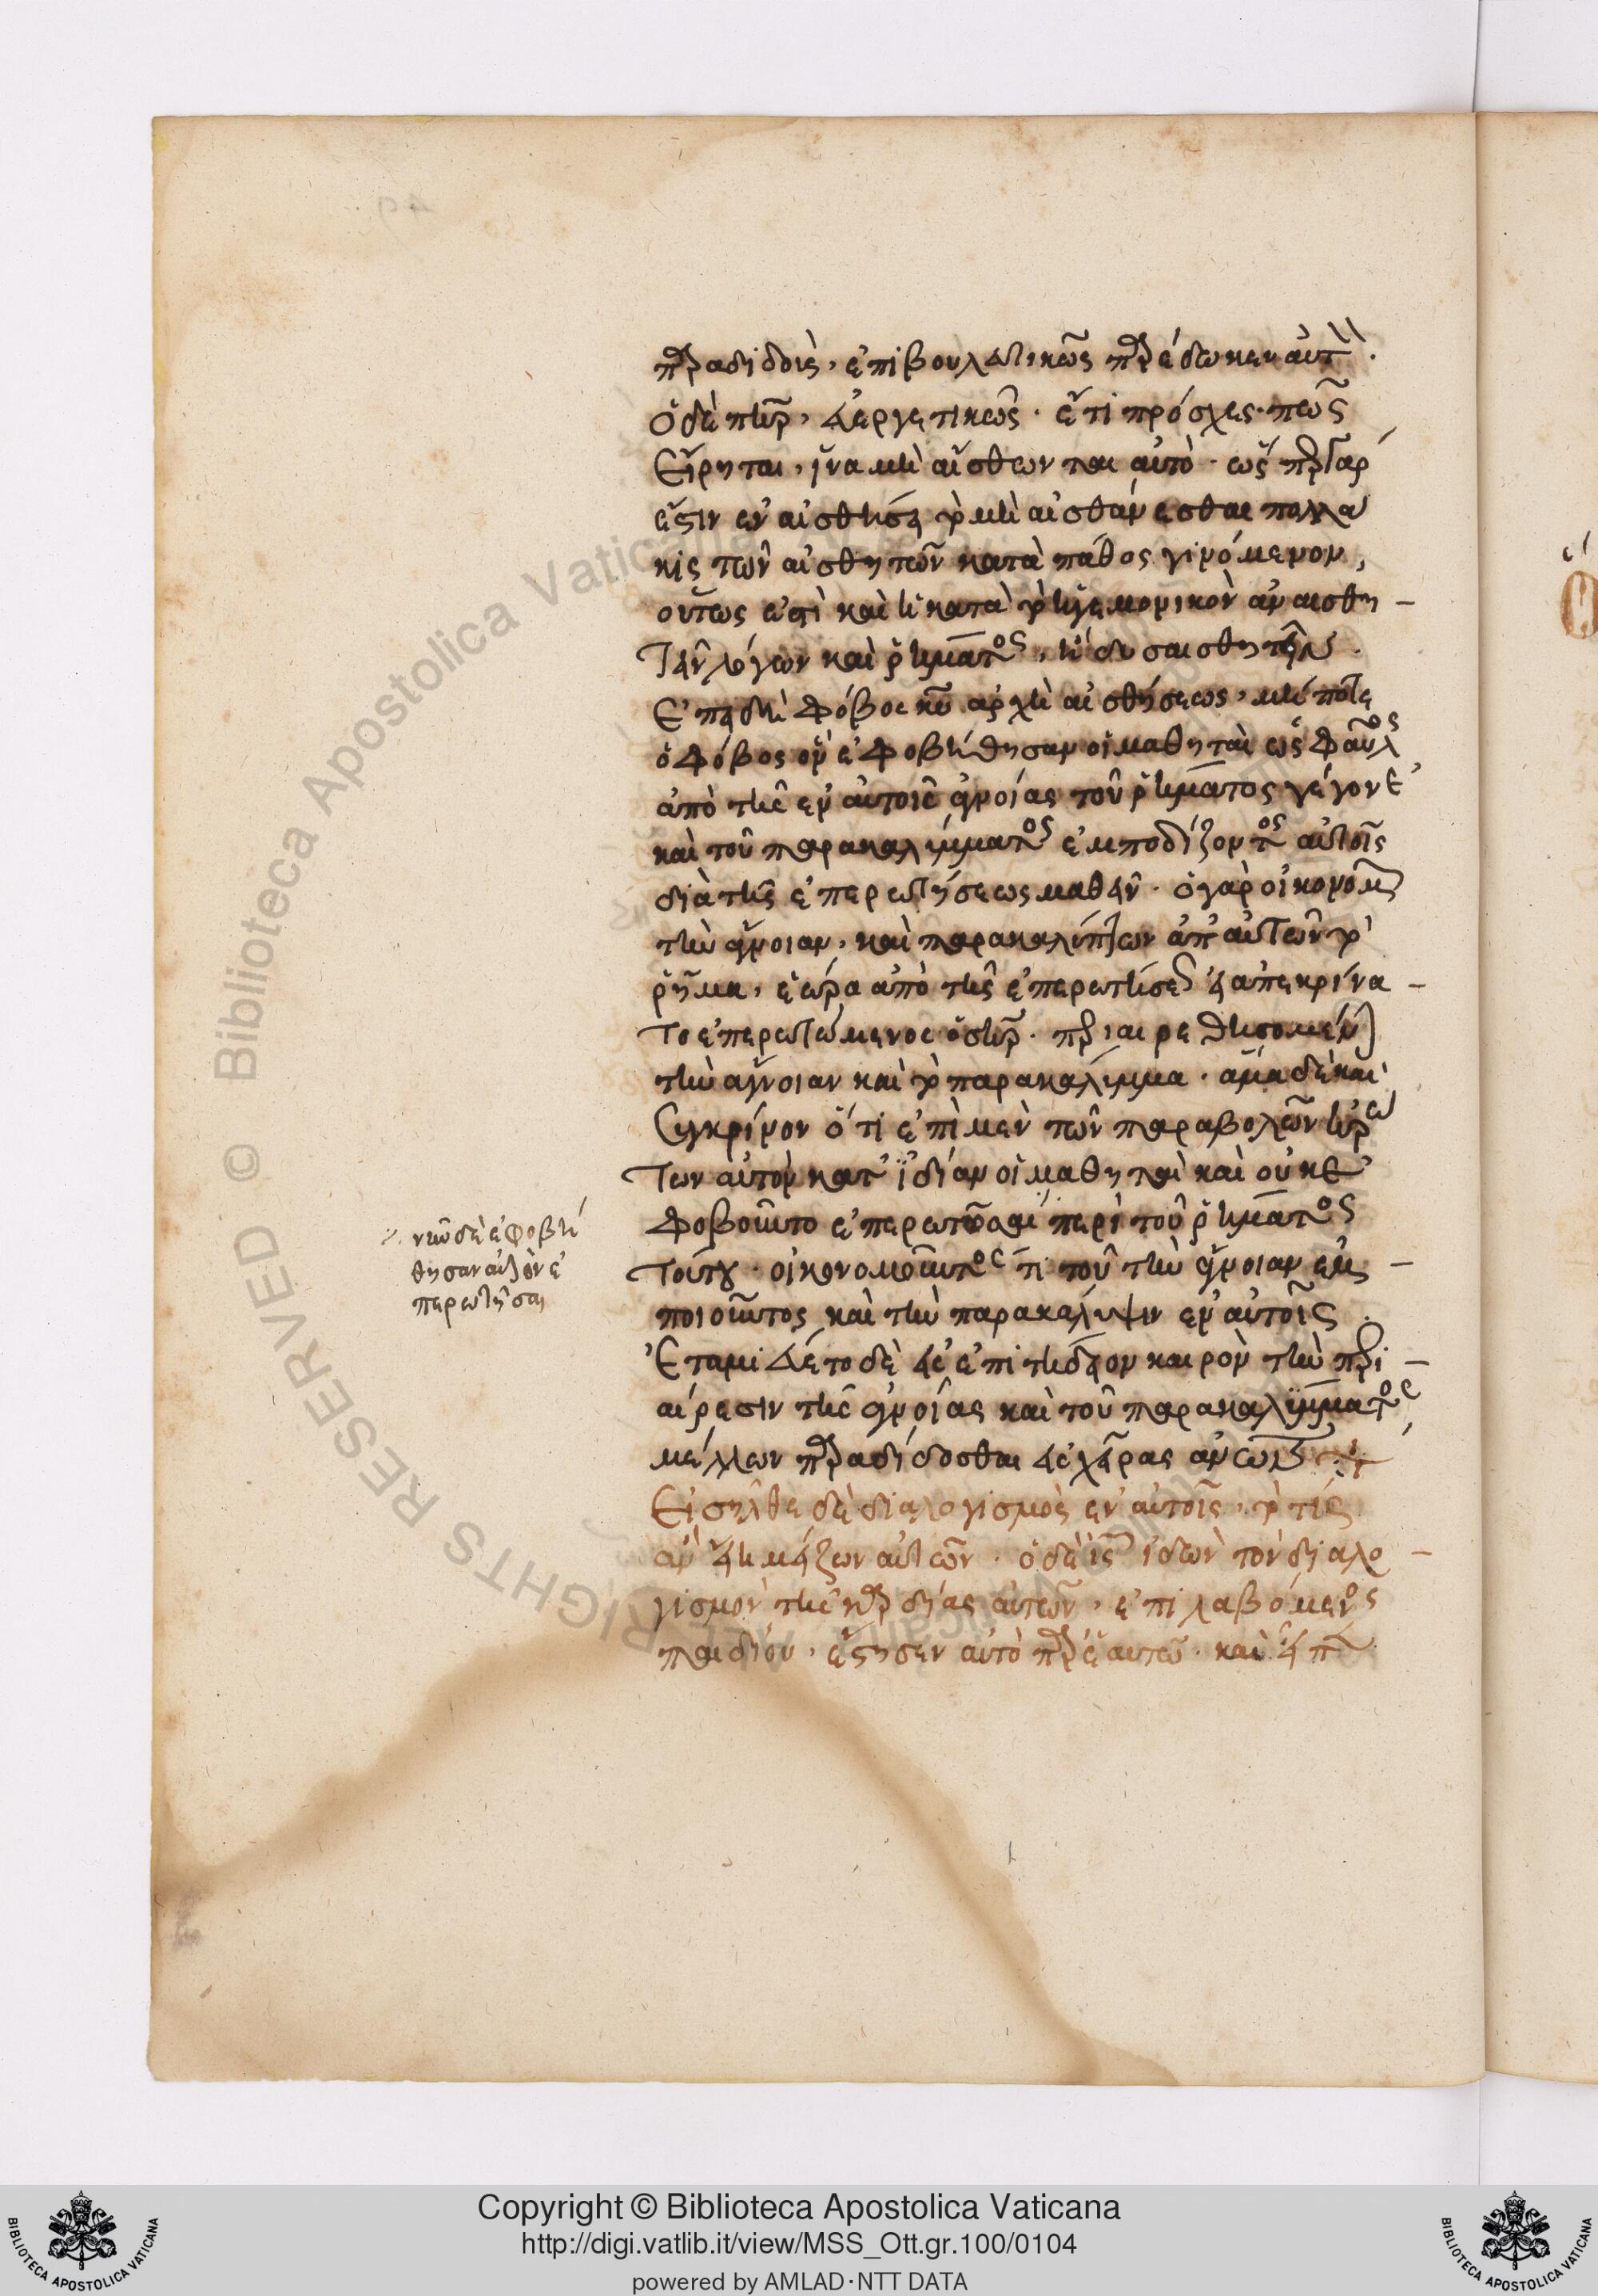 παραδιδοὺς, ἐπιβουλευτικῶς παρέδωκεν αὐτόν.
ὁ δὲ πὴρ, εὐεργετικῶς. ἔτι πρόσχες πῶς
εἴρηται, ἵνα μὴ αἴσθωνται αὐτό. ὥσπερ γάρ
ἐστιν ἐν αἰσθήσει τὸ μὴ αἰσθάνεσθαι πολλά
κις τῶν αἰσθητῶν κατὰ πάθος γινόμενον,
οὕτως ἐστὶ καὶ ἡ κατὰ τὸ ἡγεμονικὸν ἀναισθη
τεῖν λόγων καὶ ῥήματος, ἢ δυσαισθητεῖν.
Ἐπειδὴ φόβος κυ ἀρχὴ αἰσθήσεως, μήποτε
ὁ φόβος ὃν ἐφοβήθησαν οἱ μαθηταὶ ὡς φαῦλος
ἀπὸ τῆς ἐν αὐτοῖς ἀγνοίας τοῦ ῥήματος γέγονε
καὶ τοῦ παρακαλύμματος ἐμποδίζοντος αὐτοῖς
διὰ τῆς ἐπερωτήσεως μαθεῖν. ὁ γὰρ οἰκονομῶν
τὴν ἄγνοιαν, καὶ παρακαλύπτων ἀπ' αὐτῶν τὸ
ῥῆμα, ἑώρα ἀπὸ τῆς ἐπερωτήσεως εἰ ἀπεκρίνα
το ἐπερωτώμενος ὁ σὴρ. περιαιρεθησομένην
τὴν ἄγνοιαν καὶ τὸ παρακάλυμμα. ἅμα δὲ καὶ
σύγκρινον ὅτι ἐπὶ μὲν τῶν παραβολῶν ἠρώ
των αὐτὸν κατ' ἰδίαν οἱ μαθηταὶ καὶ οὐκ ἐ
φοβοῦντο ἐπερωτῶσαι περὶ τοῦ ῥήματος
τούτου. οἰκονομοῦντος τι τοῦ τὴν ἄγνοιαν ἐμ
ποιοῦντος καὶ τὴν παρακάλυψιν ἐν αὐτοῖς.
Ἐταμιεύετο δὲ εἰς ἐπιτήδειον καιρὸν τὴν περι
αίρεσιν τῆς ἀγνοίας καὶ τοῦ παρακαλύμματος
μέλλων παραδίδοσθαι εἰς χεῖρας ἀνων
Εἰσῆλθε δὲ διαλογισμὸς ἐν αὐτοῖς, τὸ τίς
ἂν εἴη μείζων αὐτῶν. ὁ δὲ ις ἰδὼν τὸν διαλο
γισμὸν τῆς καρδίας αὐτῶν, ἐπιλαβόμενος
παιδίου, ἔστησεν αὐτὸ παρ' ἑαυτῷ. καὶ εἶπεν
νῦν δὲ ἐφοβή
θησαν αὐτὸν ἐ
περωτῆσαι
Copyright © Biblioteca Apostolica Vaticana
http://digi.vatlib.it/view/MSS_Ott.gr.100/0104
powered by AMLAD·NTT DATA
BIBLIOTECA APOSTOLICA VATICANA
BIBLIOTECA APOSTOLICA VATICANA